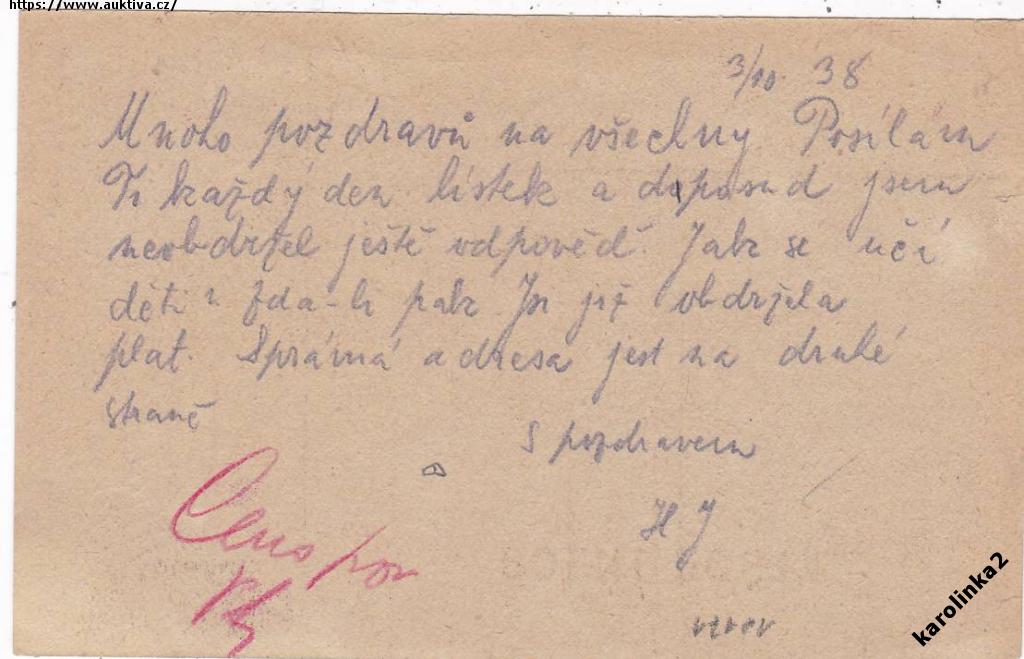 https://www.auktiva.cz/
3/10 38
Mnoho pozdravů na všechny. Posílám
Ti každý den lístek a doposud jsem
neobdržel ještě odpověď. Jak se učí
děti? Zda-li pak Jsi již obdržela
plat. Správná adresa jest na druhé
straně
S pozdravem
H J
karolinka2